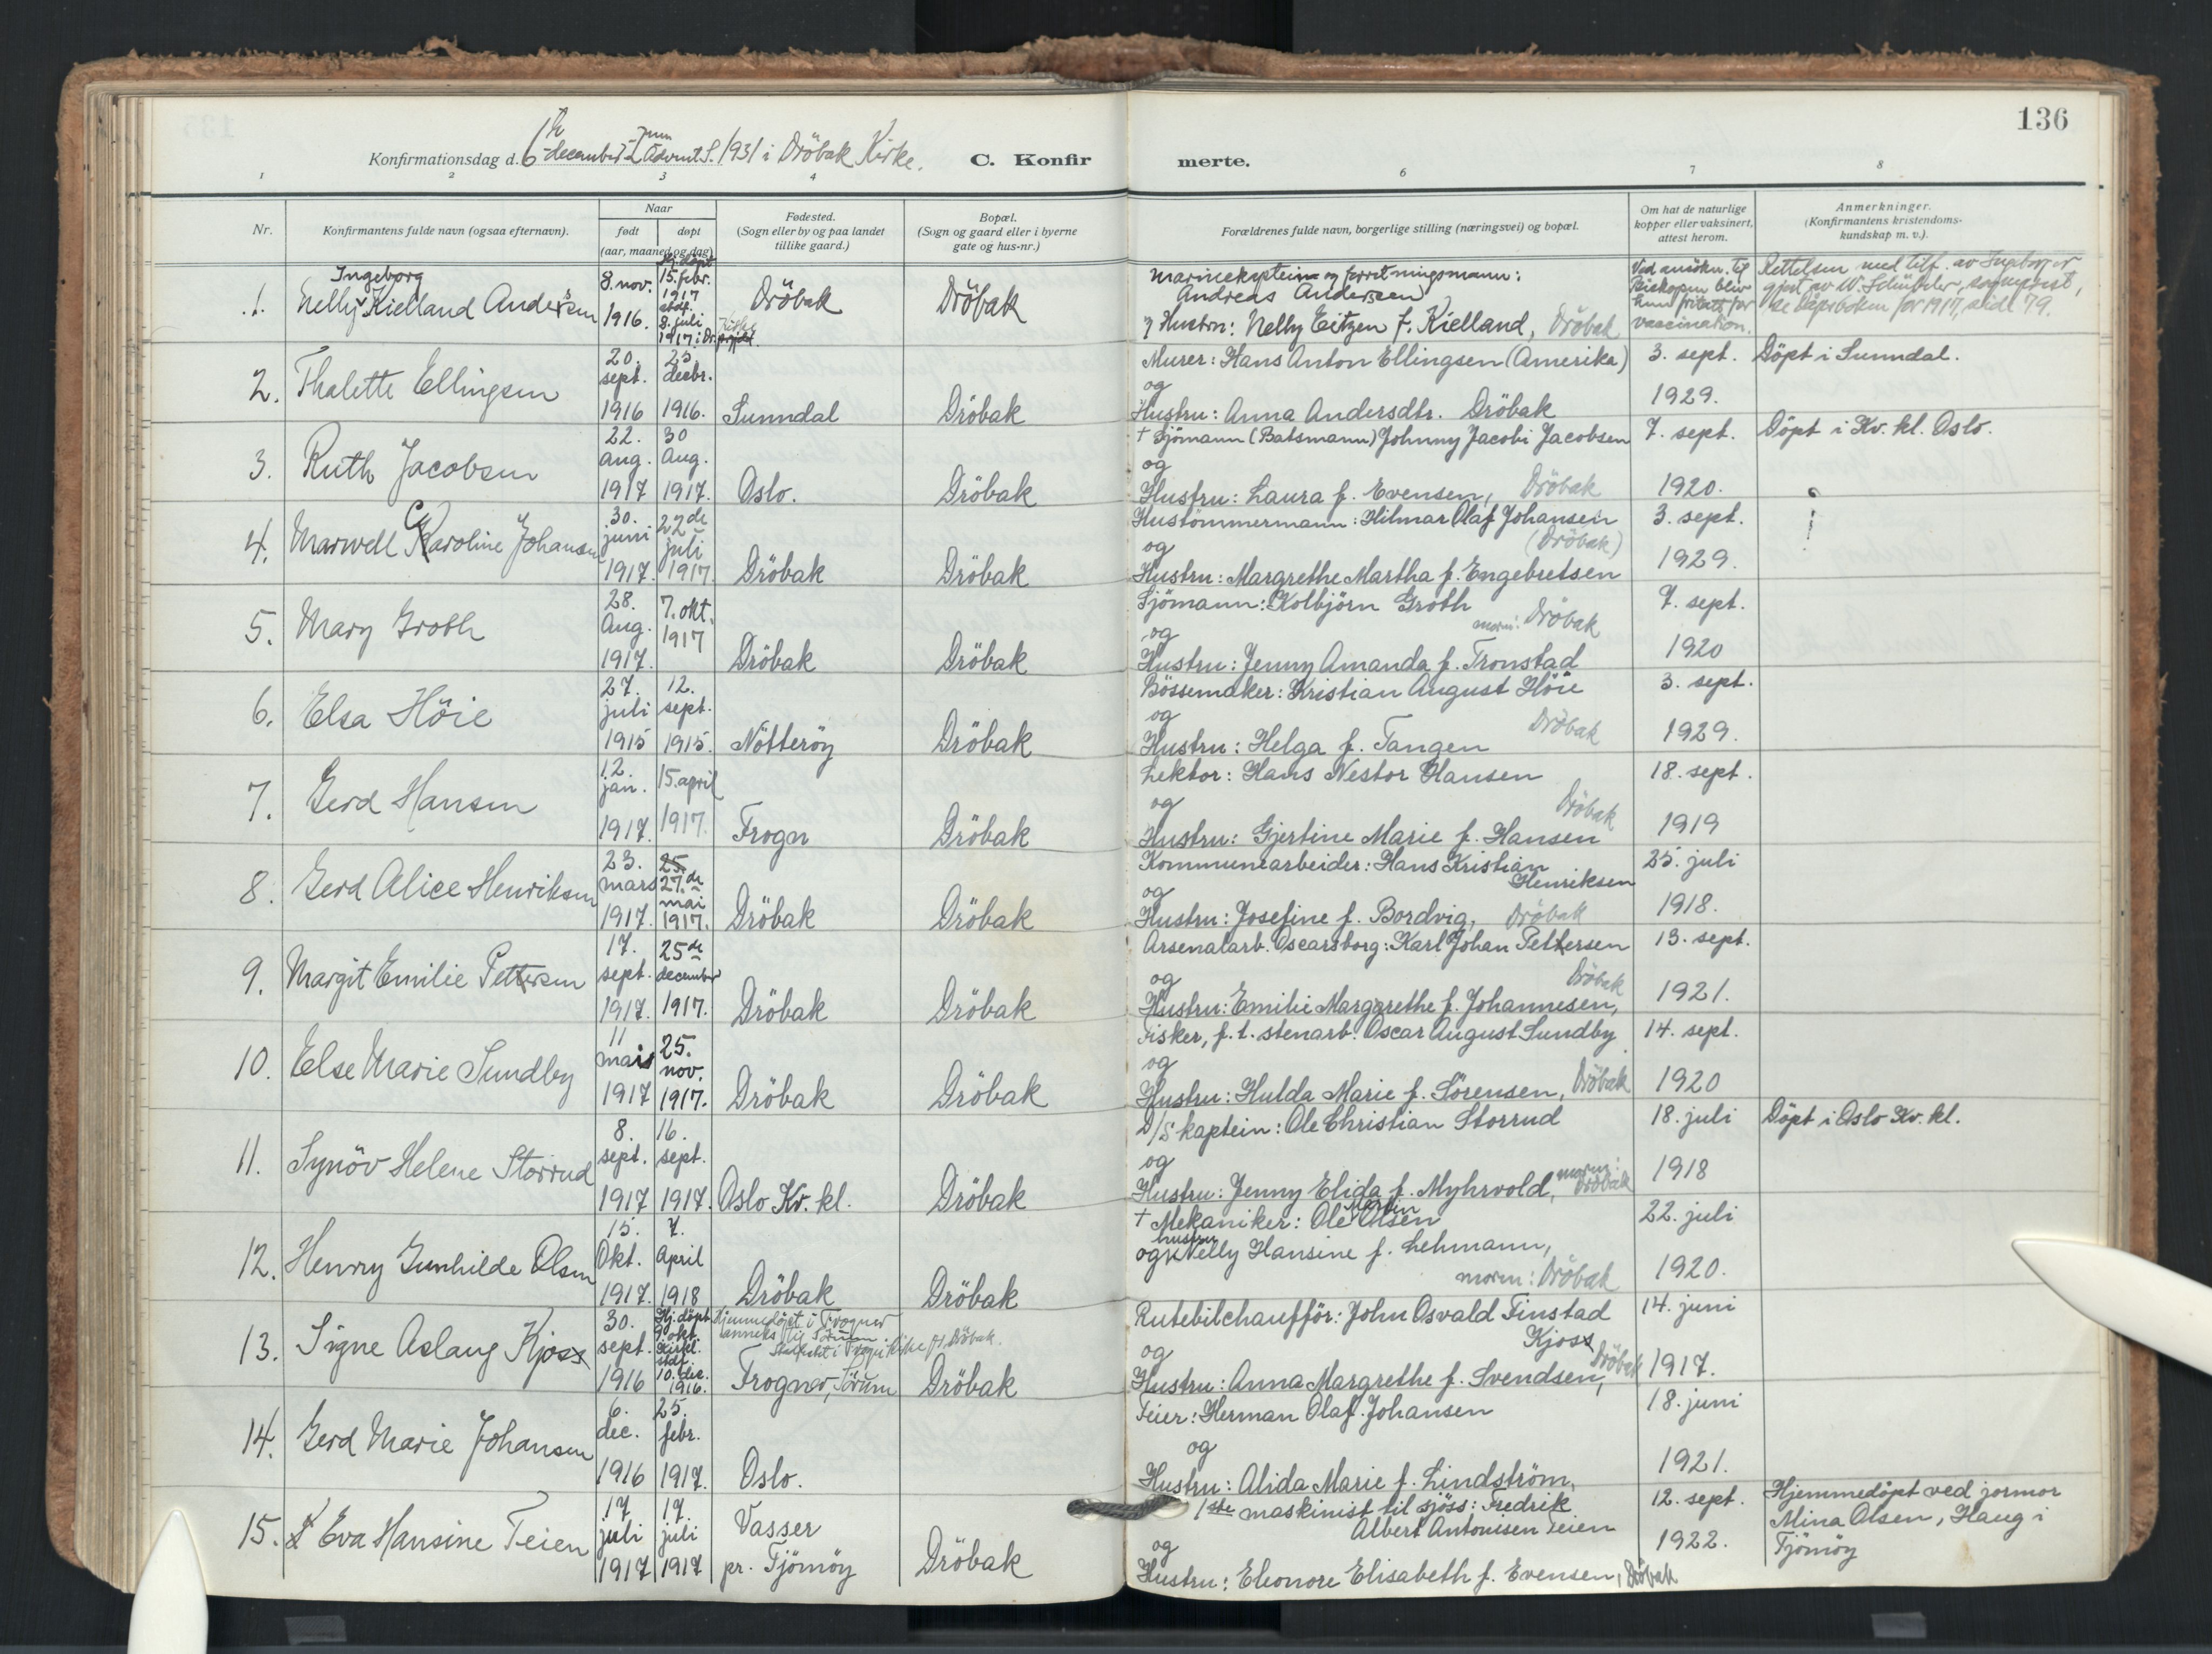 136
Konfirmationsdag d. 6te december 2nen Advent S. 1931 i Dröbak Kirke.
C. Konfirmerte.
1 2 3 4 6 7 8
Nr.
Konfirmantens fulde navn (ogsaa efternavn).
Naar
født
døpt
(aar, maaned og dag)
Fødested.
(Sogn eller by og paa landet
tillike gaard.)
Bopæl.
(Sogn og gaard eller i byerne
gate og hus-nr.)
Forældrenes fulde navn, borgerlige stilling (næringsvei) og bopæl.
Om hat de naturlige
kopper eller vaksinert,
attest herom.
Anmerkninger.
(Konfirmantens kristendoms-
kundskap m. v.).
1. Ingeborg
Nelly Kielland Andersen
8. nov. 1916.
Hj. döpt 15. febr. 1917 stadf. 8. juli 1917 i Dr. Kirke
Dröbak
Dröbak
Marinekaptein og forretningsmann:
Andreas Andersen
og Hustru: Nelly Eitzen f. Kielland, Dröbak
Ved ansökn. til
Biskopen blir
hun fritatt for
vaccination.
Rettelsen med tilf. av Ingeborg er
gjort av W. Schübeler, sogneprest,
se Döpeboken for 1917, side 79.
2. Thalette Ellingsen
20. sept. 1916
25 decbr. 1916.
Sunndal
Dröbak
Murer: Hans Anton Ellingsen (Amerika)
og
Hustru: Anna Andersdtr. Dröbak
3. sept. 1929.
Döpt i Sunndal.
3. Ruth Jacobsen
22. aug. 1917
30 aug. 1917.
Oslo.
Dröbak
† Sjömann (Batsmann) Johnny Jacobi Jacobsen
og
Hustru: Laura f. Evensen, Dröbak
7. sept. 1920.
Döpt i Kv. kl. Oslo.
4. Marwell Caroline Johansen
30. juni 1917.
22de juli 1917
Dröbak
Dröbak
Hustömmermann: Hilmar Olaf Johansen
(Dröbak)
og
Hustru: Margrethe Martha f. Engebretsen
3. sept. 1929.
5. Mary Groth
28. Aug. 1917.
7. okt. 1917
Dröbak
Dröbak
Sjömann: Kolbjörn Groth
og morm: Dröbak
Hustru: Jenny Amanda f. Tronstad
7. sept. 1920
6. Elsa Höie
27. juli 1915
12. sept. 1915.
Nötteröy
Dröbak
Bössemaker: Kristian August Höie
og Dröbak
Hustru: Helga f. Tangen
3. sept. 1929.
7. Gerd Hansen
12. jan. 1917.
15. april 1917.
Frogn
Dröbak
Lektor: Hans Nestor Hansen
og Dröbak
Hustru: Gjertine Marie f. Hansen
18. sept. 1919
8. Gerd Alice Henriksen
23. mars 1917.
25. 27.de mai 1917.
Dröbak
Dröbak
Kommunearbeider: Hans Kristian
Henriksen
og
Hustru: Josefine f. Bordvig, Dröbak
25. juli 1918.
9. Margit Emilie Pettersen
17. sept. 1917.
25de december 1917.
Dröbak
Dröbak
Arsenalarb. Oscarsborg: Karl Johan Pettersen
og Dröbak
Hustru: Emilie Margarethe f. Johannesen,
13. sept. 1921.
10. Else Marie Sundby
11 mars 1917
25. nov. 1917.
Dröbak
Dröbak
Fisker, f. t. stenarb. Oscar August Sundby
og
Hustru: Hulda Marie f. Sörensen, Dröbak
14. sept. 1920
11. Synöv Helene Storrud
8. sept. 1917
16. sept. 1917.
Oslo Kv. kl.
Dröbak
D/S kaptein: Ole Christian Storrud
og
Hustru: Jenny Elida f. Myhrvold, morm: Dröbak
18. juli 1918
Döpt i Oslo Kv. kl.
12. Henry Gunhilde Olsen
15. Okt. 1917.
7. April 1918
Dröbak
Dröbak
† Mekaniker: Ole Martin Olsen
og hustru Nelly Hansine f. Lehmann,
morm: Dröbak
22. juli 1920.
13. Signe Aslaug Kjoss
30. sept. 1916
Hj. döpt 9. okt. Kirkel. stdf. 10. dec. 1916.
Hjemmedöpt i Frogner
anneks til Sörum.
Frogner, Sörum
Dröbak
Rutebilchafför: John Osvald Finstad
Kjoss
og Dröbak
Hustru: Anna Margrethe f. Svendsen,
14. juni 1917.
14. Gerd Marie Johansen
6. dec. 1916
25. febr. 1917.
Oslo.
Feier: Herman Olaf Johansen
og
Hustru: Alida Marie f. Lindström,
18. juni 1921.
15. Eva Hansine Teien
17 juli 1917
17. juli 1917
Vasser
pr. Tjömöy
Dröbak
1ste maskinist til sjöss: Fredrik
Albert Antonisen Teien
og
Hustru: Eleonore Elisabeth f. Evensen, Dröbak
12. sept. 1922.
Hjemmedöpt ved jormor
Mina Olsen, Haug i
Tjömöy